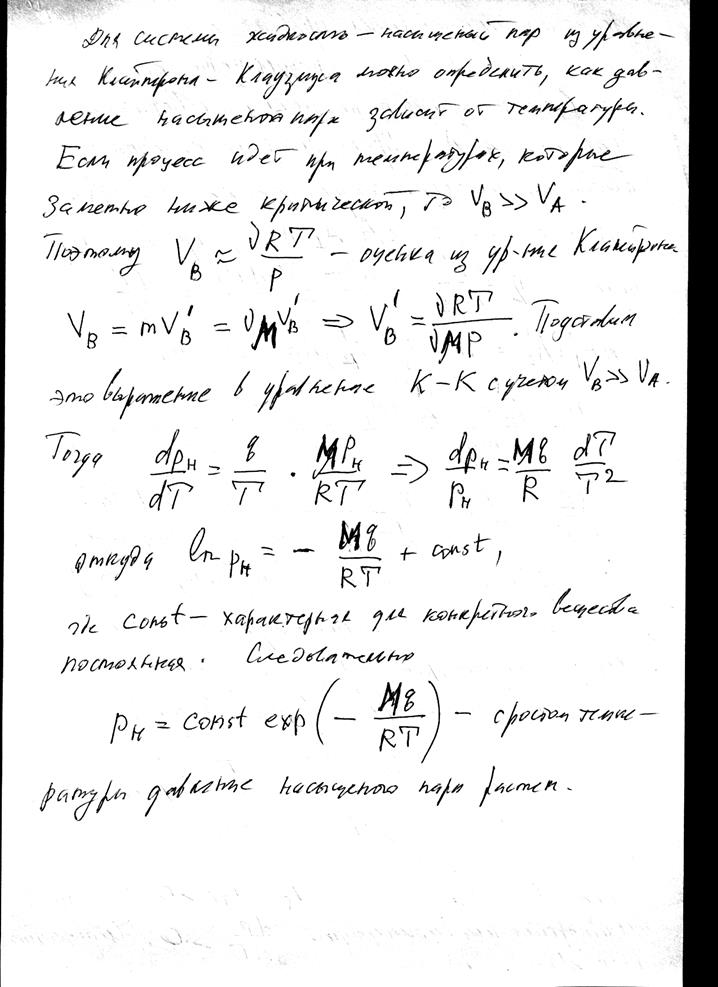 Для системы жидкость – насыщеный пар из уравне-
ния Клайперона – Клаузиуса можно определить, как дав-
ление насыщеного пара зависит от температуры.
Если процесс идет при температурах, которые
заметно ниже критической, то V_B >> V_A.
Поэтому V_B ≈ νRT/P – оценка из ур-ние Клапейрона
V_B = mV_B' = νMV_B' ⇒ V_B' = νRT/νMP. Подставим
это выражение в уравнение К–К с учетом V_B >> V_A.
Тогда dp_н/dT = q/T · Mp_н/RT ⇒ dp_н/p_н = Mq/R dT/T²
откуда ln p_н = – Mq/RT + const,
где const – характерная для конкретного вещества
постоянная. Следовательно
p_н = const exp(– Mq/RT) – с ростом темпе-
ратуры давление насыщеного пара растет.